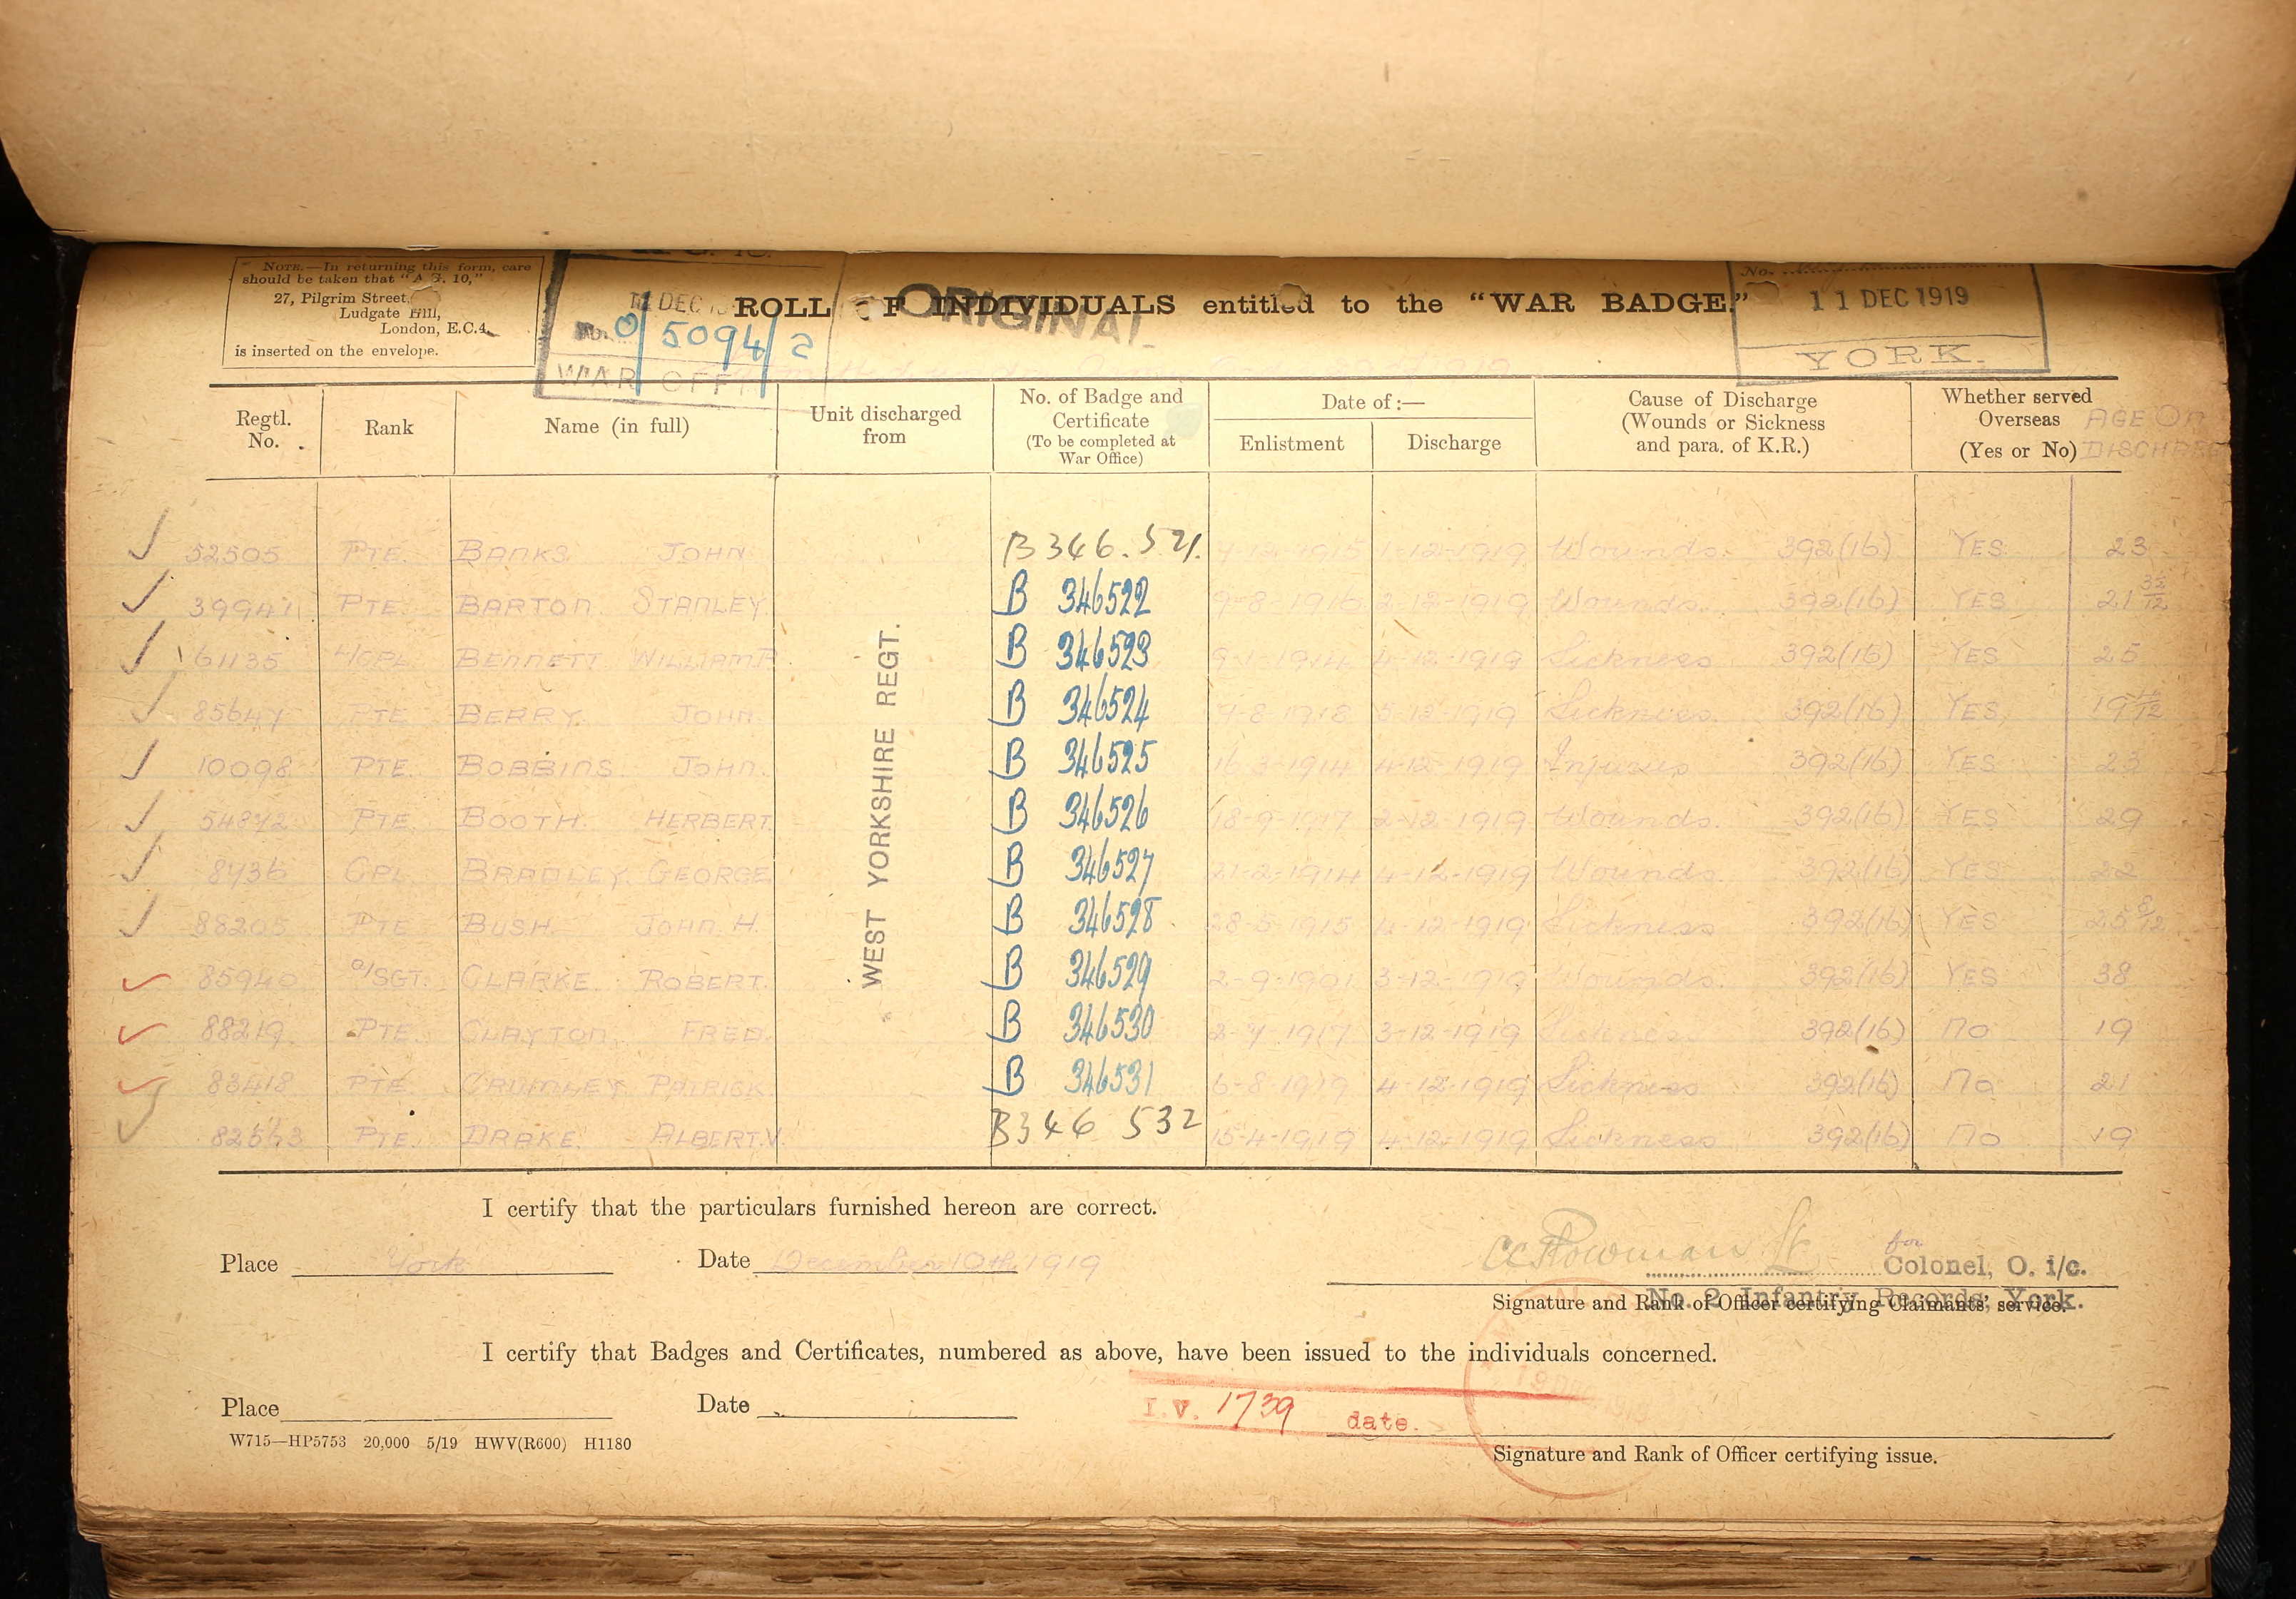 NOTE.—In returning this form, care
should be taken that "A.G. 10,"
27, Pilgrim Street,
Ludgate Hill,
London, E.C.4.
is inserted on the envelope.
DEC
No. O/5094/2
WAR OFFI
ORIGINAL
ROLL OF INDIVIDUALS entitled to the "WAR BADGE."
No.
11 DEC 1919
YORK.
Regtl. No. Rank Name (in full) Unit discharged from No. of Badge and Certificate (To be completed at War Office) Date of:— Enlistment Discharge Cause of Discharge (Wounds or Sickness and para. of K.R.) Whether served Overseas (Yes or No) AGE ON DISCHARGE
52505 PTE. BANKS JOHN B 346.521. 1-12-1919 Wounds. 392(16) YES 23
PTE. BARTON STANLEY. B 346522 9-8-1916 2-12-1919 Wounds. 392(16) YES 21
61135 L/CPL BENNETT WILLIAM B 346523 9-1-1914 4-12-1919 Sickness 392(16) YES 25
85647 PTE BERRY JOHN. B 346524 9-8-1918 5-12-1919 Sickness 392(16) YES 19
10098 PTE. BOBBINS JOHN. B 346525 16-3-1914 4-12-1919 Injuries 392(16) YES 23
54872 PTE. BOOTH HERBERT. B 346526 18-9-1917 2-12-1919 Wounds. 392(16) YES 29
8736 CPL BRADLEY GEORGE B 346527 21-2-1914 4-12-1919 Wounds 392(16) YES 22
88205 PTE BUSH. JOHN H. B 346528 28-5-1915 4-12-1919 Sickness 392(16) YES 25 8/12
85940 A/SGT. CLARKE ROBERT. B 346529 2-9-1901 3-12-1919 Wounds. 392(16) YES 38
88219 PTE. CLAYTON FRED. B 346530 2-7-1917 3-12-1919 Sickness 392(16) NO 19
83418 PTE CRUMLEY PATRICK B 346531 6-8-1919 4-12-1919 Sickness 392(16) NO 21
PTE. DRAKE. ALBERT.V. B346 532 15-4-1919 4-12-1919 Sickness 392(16) NO 19
WEST YORKSHIRE REGT.
I certify that the particulars furnished hereon are correct.
Place York Date December 10th 1919
for
Colonel, O. i/c.
No. 2 Infantry Records, York.
Signature and Rank of Officer certifying Claimants' service.
I certify that Badges and Certificates, numbered as above, have been issued to the individuals concerned.
Place Date
I.V. 1739 date.
W715—HP5753 20,000 5/19 HWV(R600) H1180
Signature and Rank of Officer certifying issue.